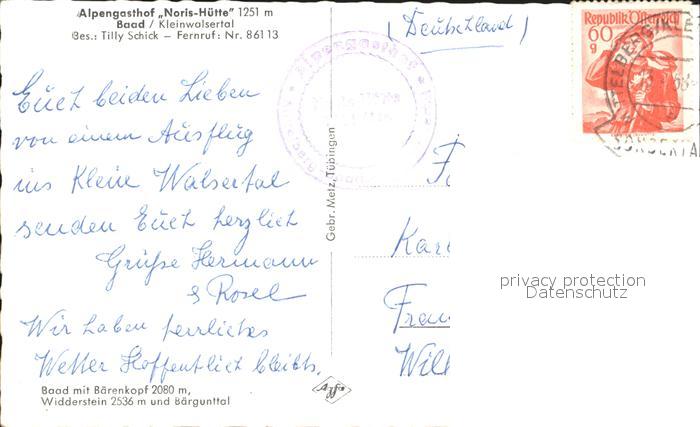 Alpengasthof „Noris-Hütte" 1251 m
Baad / Kleinwalsertal
Bes.: Tilly Schick — Fernruf: Nr. 86113
(Deutschland)
Republik Österreich
60
g
Alpengasthof
Euch beiden Lieben
von einem Ausflug
ins Kleine Walsertal
senden Euch herzlich
Grüße Hermann
& Rosel
Wir haben herrliches
Wetter Hoffentlich bleibts.
Baad mit Bärenkopf 2080 m,
Widderstein 2536 m und Bärgunttal
Gebr. Metz, Tübingen
Agfa
privacy protection
Datenschutz